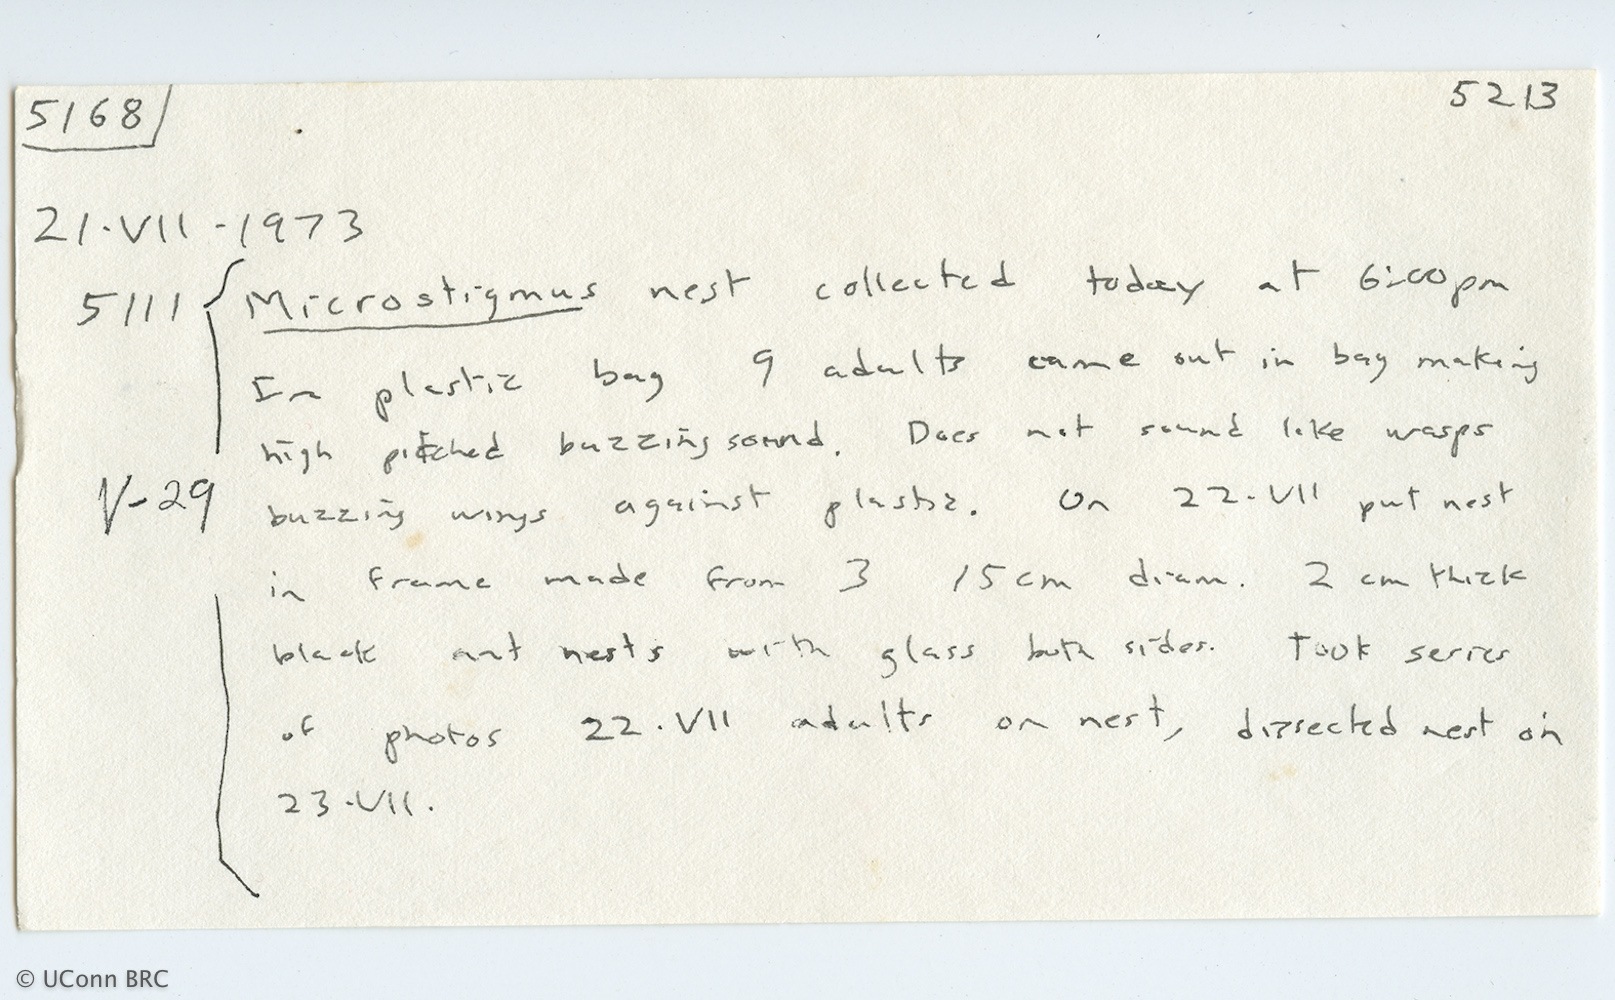 5168
5213
21·VII-1973
5111 Microstigmus nest collected today at 6:00pm
In plastic bag 9 adults came out in bag making
high pitched buzzing sound. Does not sound like wasps
V-29
buzzing wings against plastic. On 22-VII put nest
in frame made from 3 15cm diam. 2 cm thick
black ant nests with glass both sides. Took series
of photos 22·VII adults on nest, dissected nest on
23·VII.
© UConn BRC